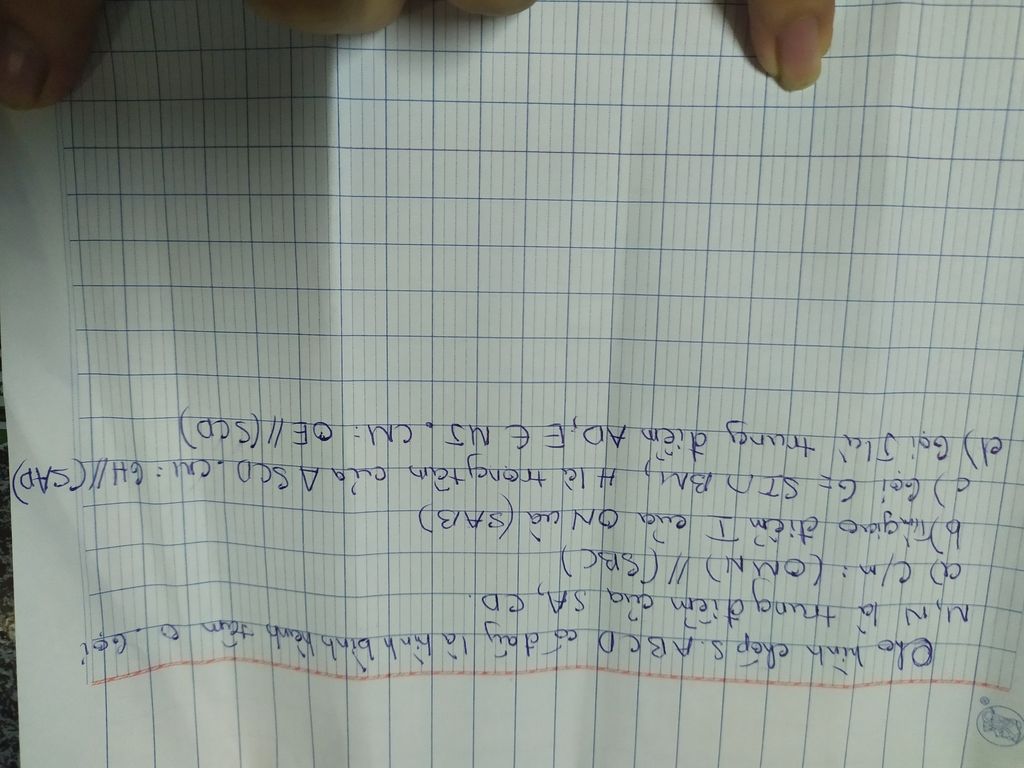 Cho hình chóp S.ABCD có đáy là hình bình hành tâm O. Gọi
M, N là trung điểm của SA, CD.
a) C/m: (OMN) // (SBC)
b) Tìm giao điểm I của ON và (SAB)
c) Gọi G = SI ∩ BM, H là trọng tâm của Δ SCD. CM: GH // (SAD)
d) Gọi J là trung điểm AD, E ∈ MJ. CM: OE // (SCD)